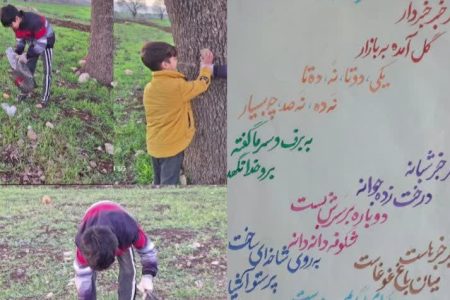 خبر خبردار
گل آمده به بازار
یکی، دوتا، نه، ده تا
نه ده، نه صد، چه بسیار
به برف و سرما گفته
برو خدا نگهد
خبر شبانه
درخت زده جوانه
دوباره بر سرش بست
شکوفه دانه دانه
خبرهاست
میان باغ غوغاست
به روی شاخه‌ای سخت
پرستو آشیا